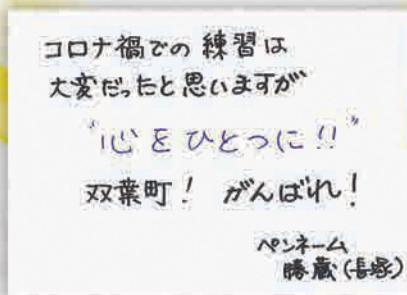 コロナ禍での練習は
大変だったと思いますが
"心をひとつに!!"
双葉町! がんばれ!
ペンネーム
勝蔵(長塚)